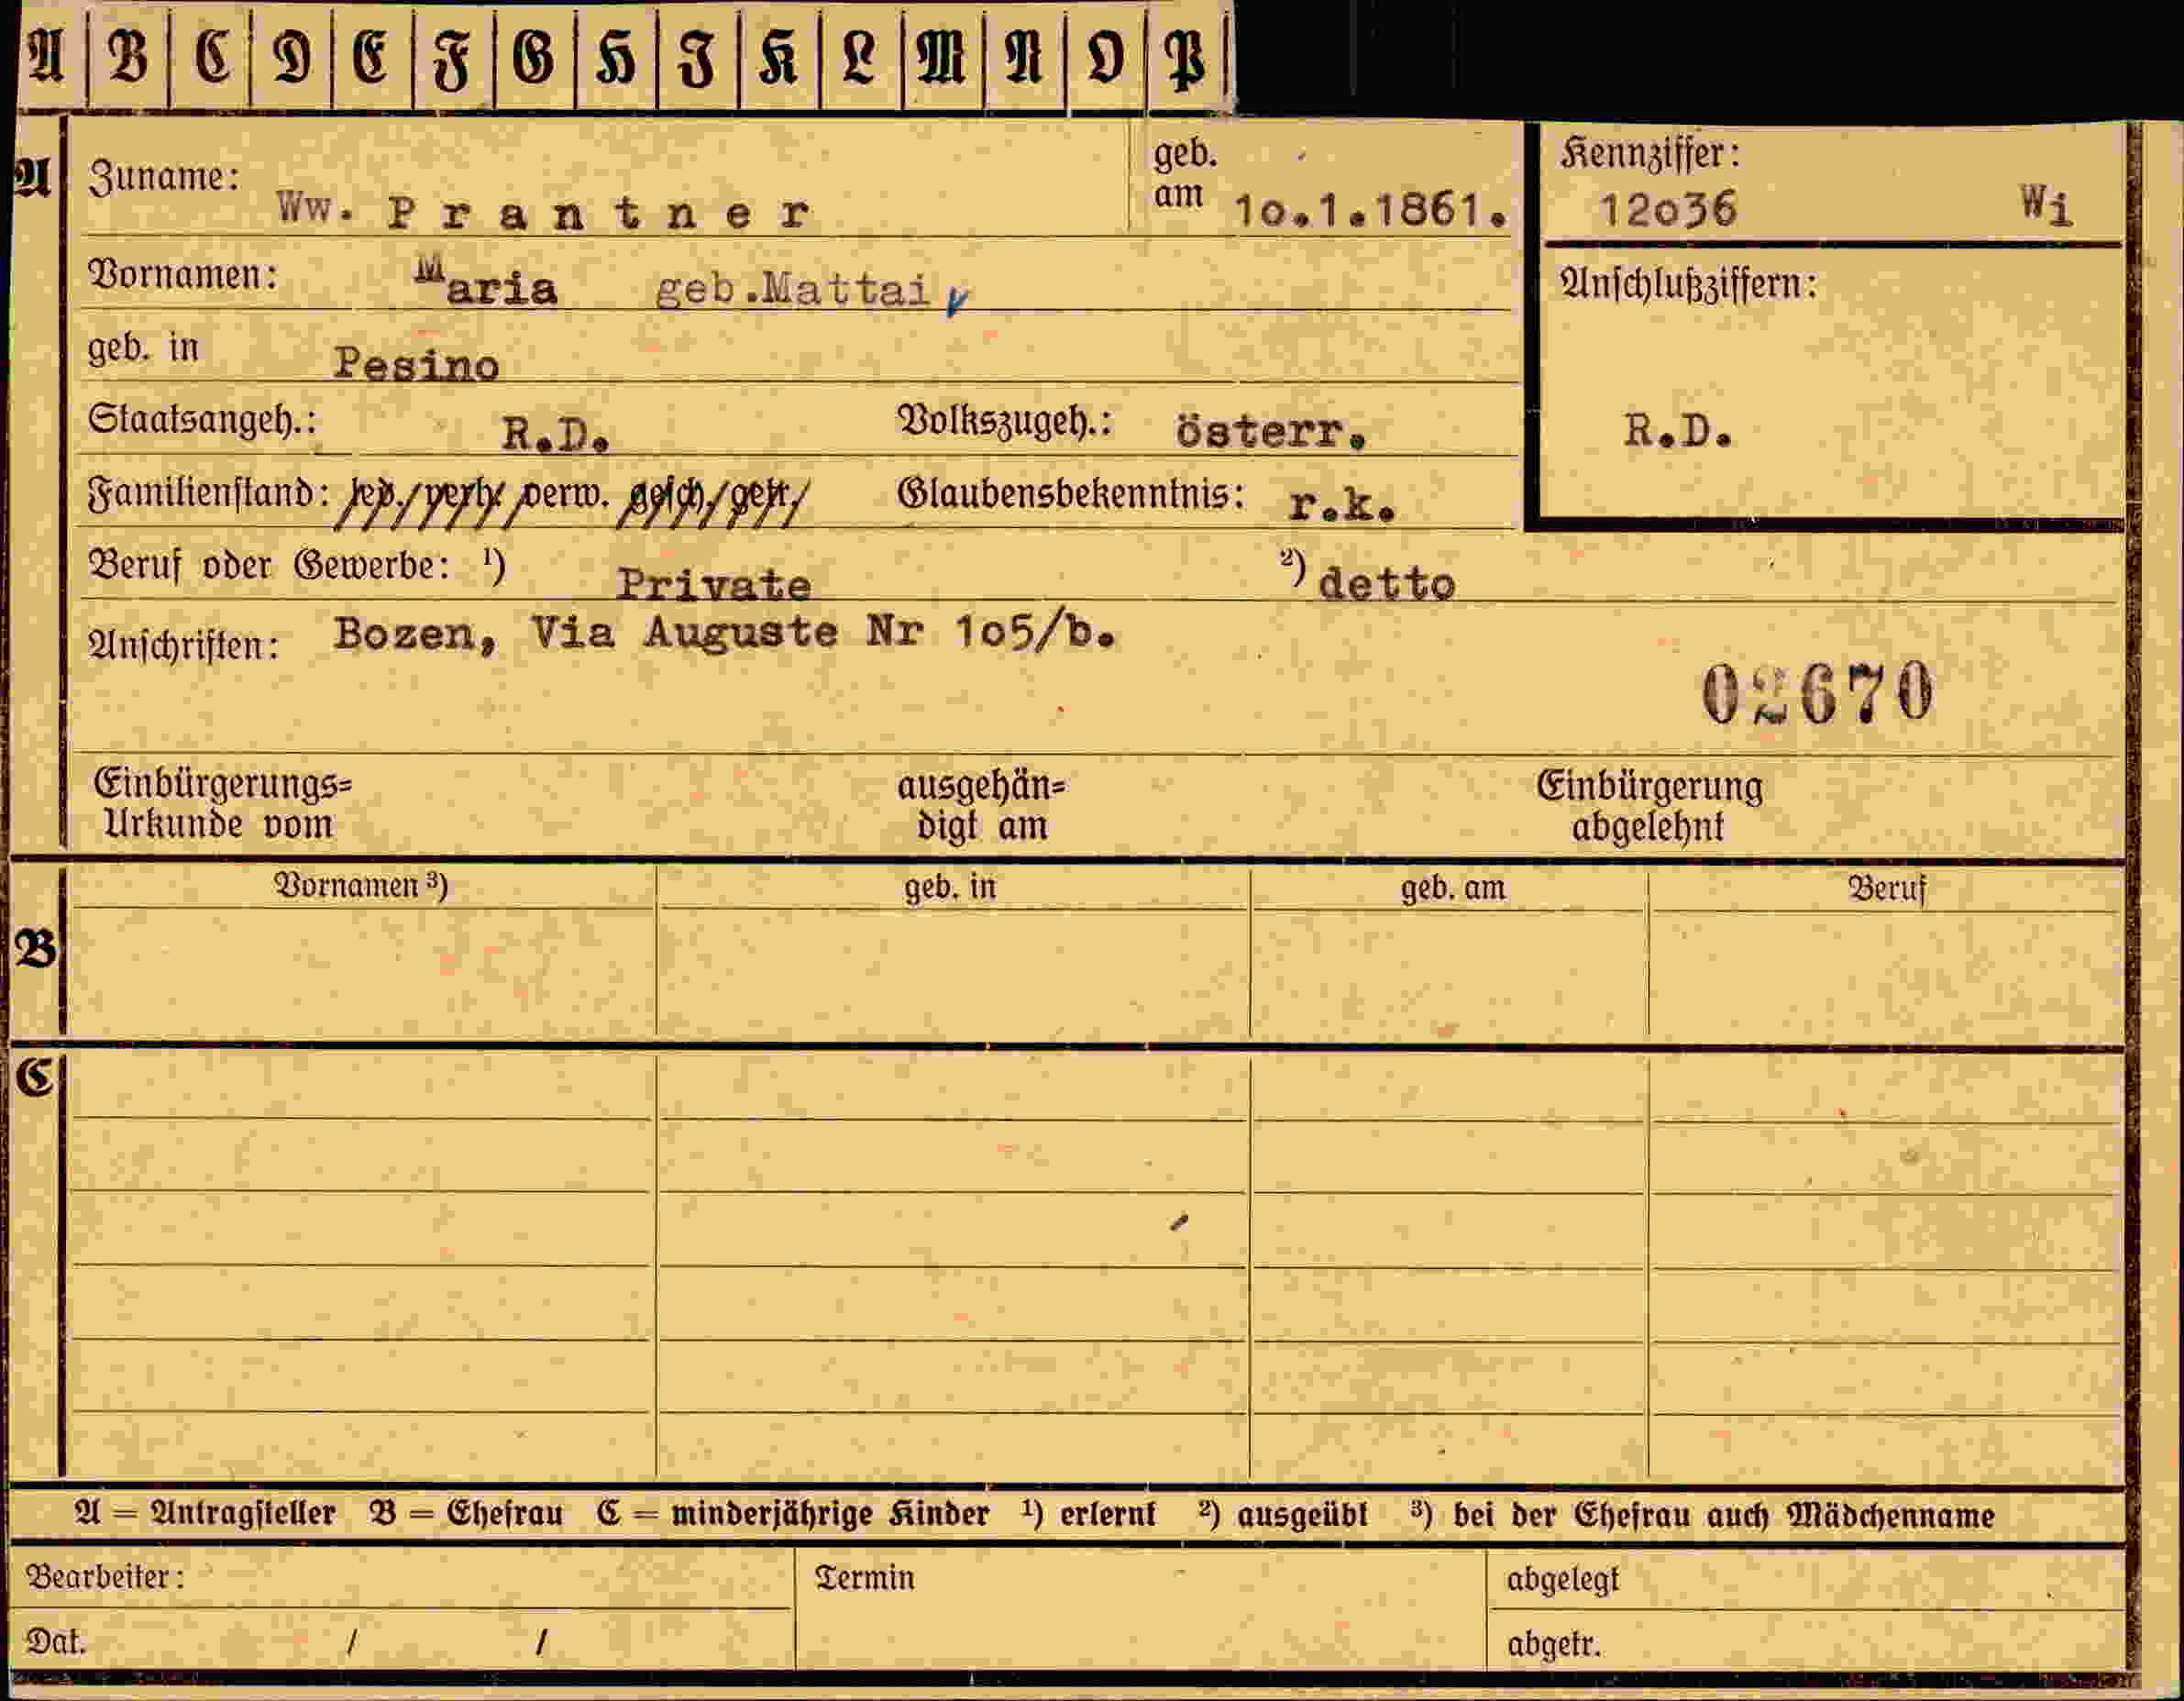 A B C D E F G H J K L M N O P
A Zuname: Ww. Prantner geb. am 10.1.1861. Kennziffer: 12o36 Wi
Vornamen: Maria geb.Mattai Anschlußziffern:
geb. in Pesino
Staatsangeh.: R.D. Volkszugeh.: österr. R.D.
Familienstand: led./verh./verw. gesch./getr. Glaubensbekenntnis: r.k.
Beruf oder Gewerbe: ¹) Private ²) detto
Anschriften: Bozen, Via Auguste Nr 1o5/b.
02670
Einbürgerungs= ausgehän= Einbürgerung
Urkunde vom digt am abgelehnt
Vornamen ³) geb. in geb. am Beruf
B
C
A = Antragsteller B = Ehefrau C = minderjährige Kinder ¹) erlernt ²) ausgeübt ³) bei der Ehefrau auch Mädchenname
Bearbeiter: Termin abgelegt
Dat. / / abgetr.